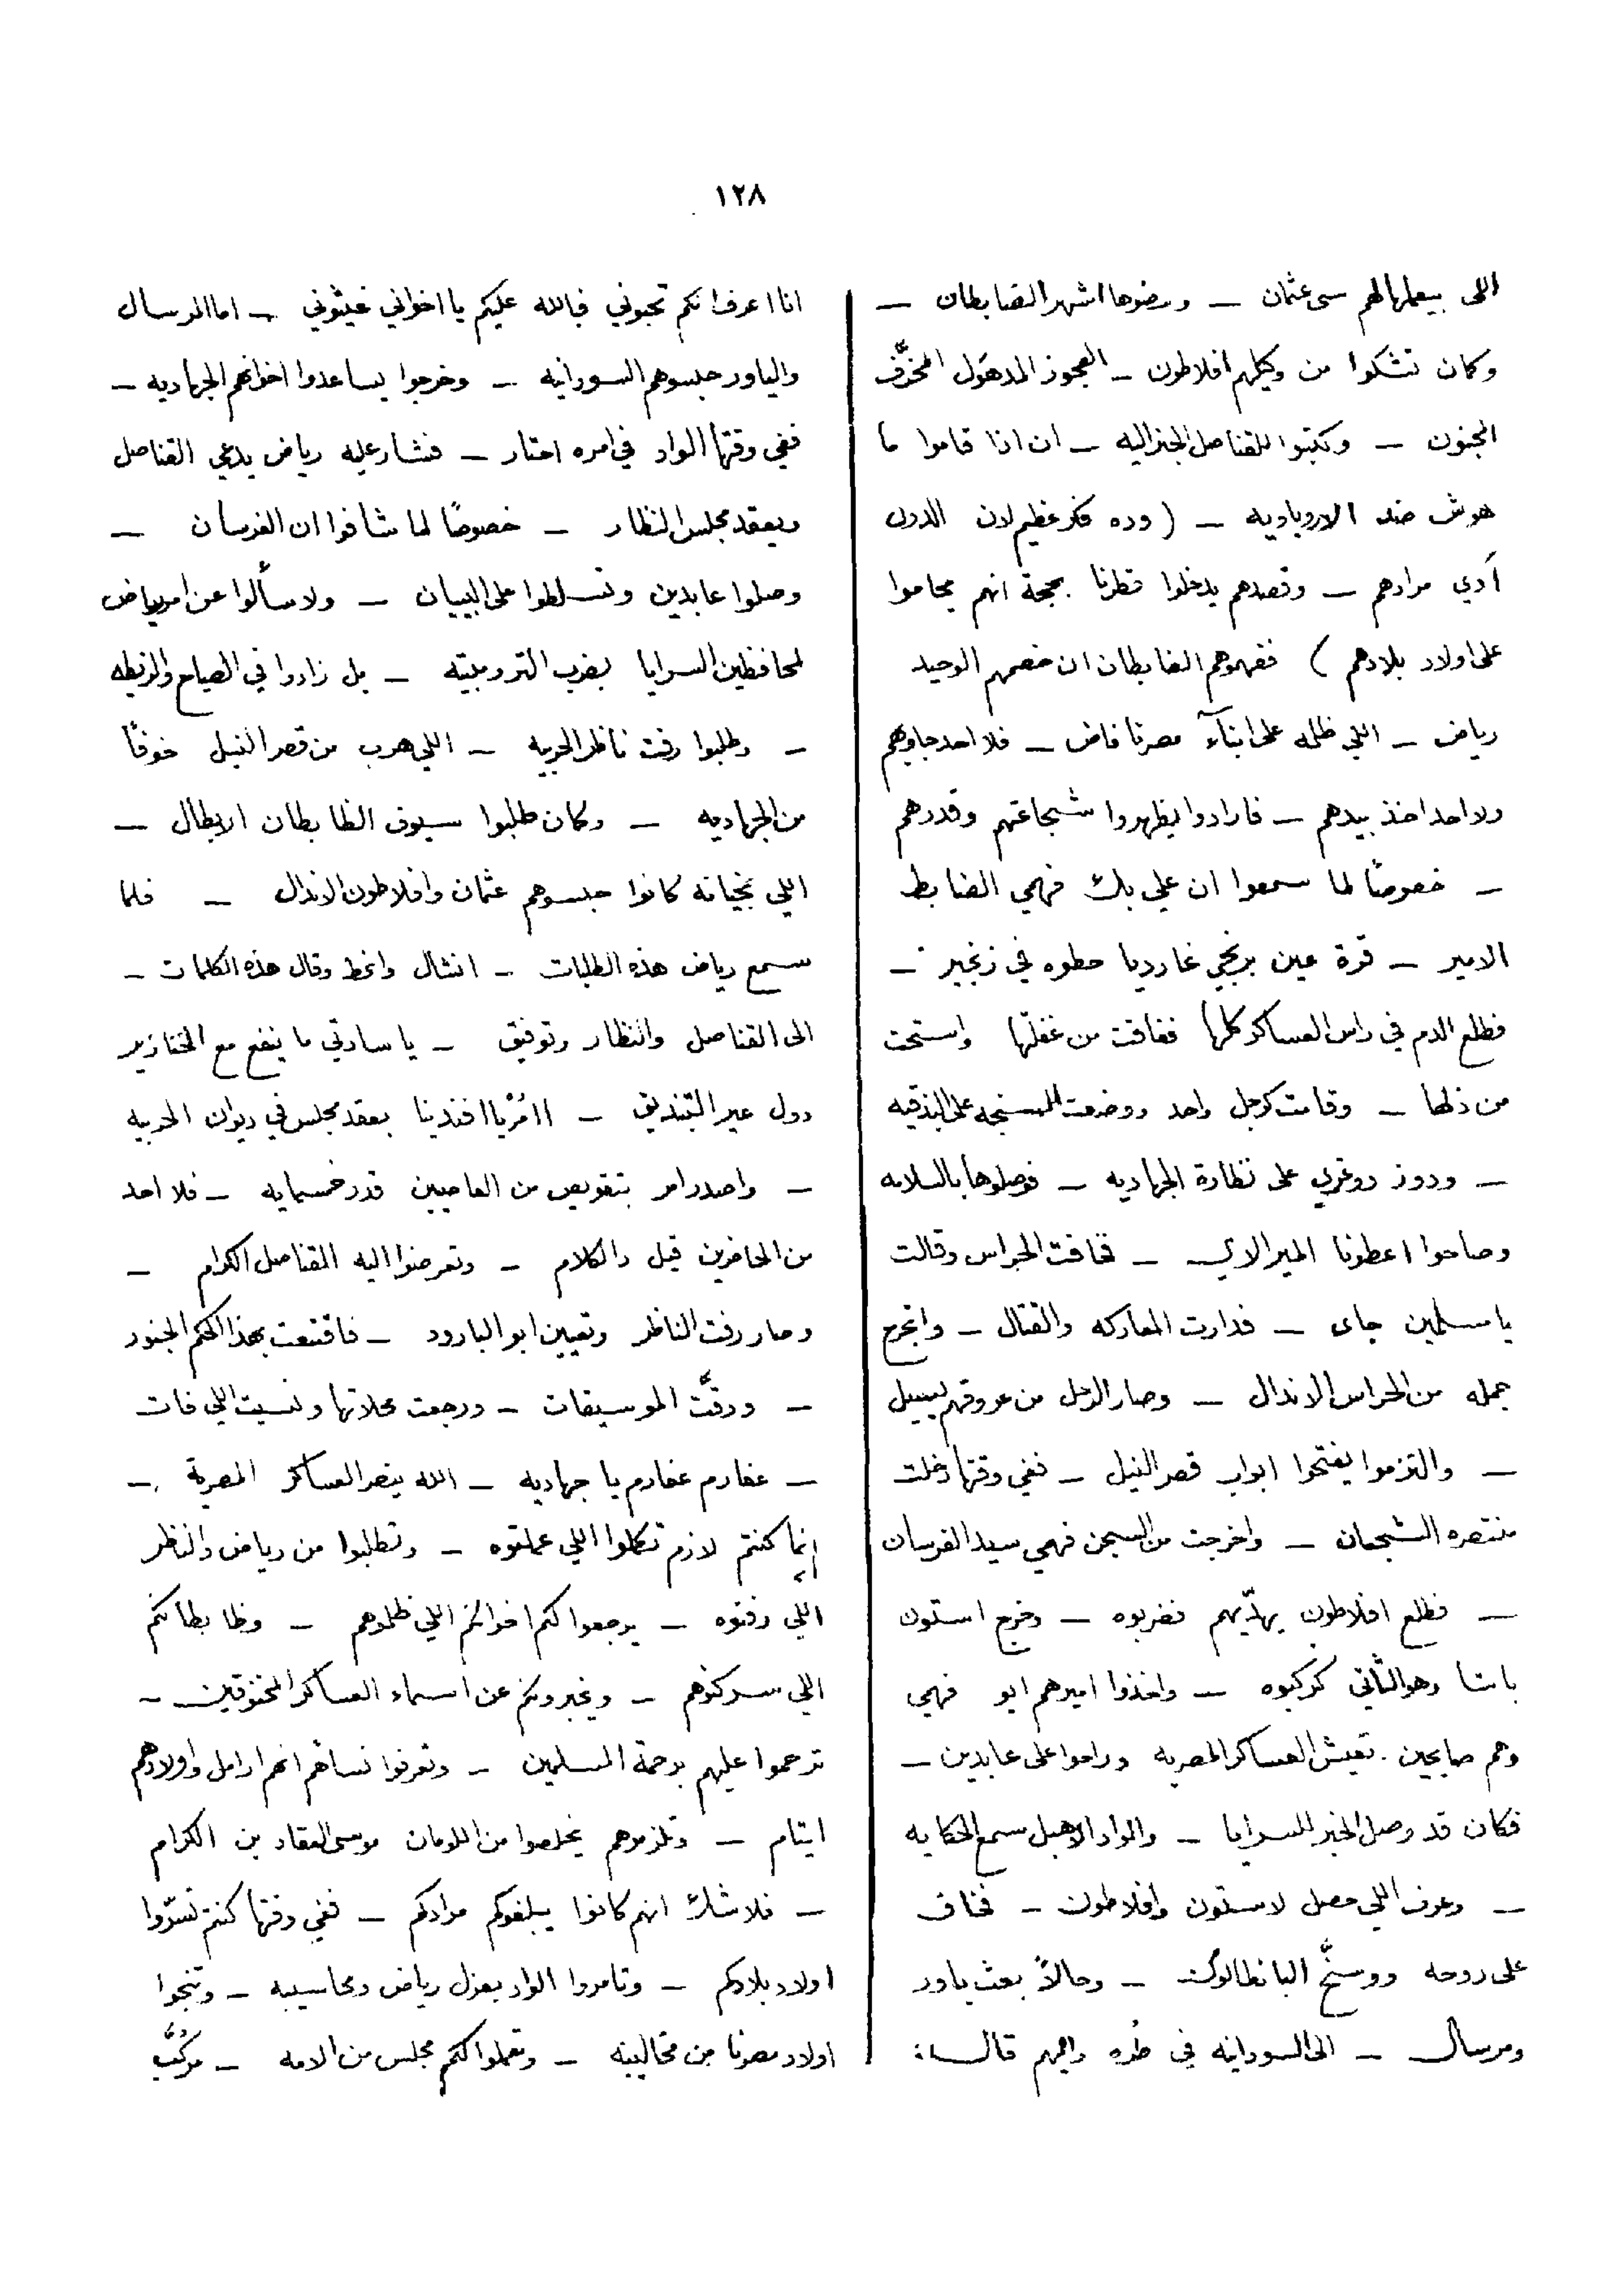 ١٢٨
اللى بيعملها لهم سى عثمان — ومضوها اشهر الضابطان —
وكمان تشكوا من وكيلهم افلاطون — العجوز المدهول المخرَّف
المجنون — وكتبوا للقناصل الجنراليه — ان اذا قاموا ما
هوش ضد الاروباويه — ( وده فكر عظيم لان الدول
أدي مرادهم — وقصدهم يدخلوا قطرنا بحجة انهم يحاموا
على اولاد بلادهم ) ففهموهم الضابطان ان خصمهم الوحيد
رياض — اللي ظلمه على ابنآء مصرنا فاض — فلا احد جاوبهم
ولا احد اخذ بيدهم — فارادوا يظهروا شجاعتهم وقدرهم
— خصوصًا لما سمعوا ان علي بك فهمي الضابط
الامير — قرة عين برنجي غارديا حطوه في زنجير —
فطلع الدم في راس العساكر كلها ففاقت من غفلتها واستحت
من ذلها — وقامت كرجل واحد ووضعت السنجه على البندقيه
— ودوز دوغري على نظارة الجهاديه — فوصلوها بالسلامه
وصاحوا اعطونا الميرالاي — فخافت الحراس وقالت
يا مسلمين جاى — فدارت المعاركه والقتال — وانجرح
جمله من الحراس الاندال — وصار الدم من عروقهم يسيل
— والتزموا يفتحوا ابواب قصر النيل — ففي وقتها دخلت
منتصره الشجعان — واخرجت من السجن فهمي سيد الفرسان
— فطلع افلاطون يهدّيهم فضربوه — وخرج استون
باشا وهو الثاني كركبوه — واخذوا اميرهم ابو فهمي
وهم صايحين . تعيش العساكر المصريه وراحوا على عابدين —
فكان قد وصل الخبر للسرايا — والواد الاهبل سمع الحكايه
— وعرف اللي حصل لاستون وافلاطون — فخاف
على روحه ووسَّخ البانطالون — وحالاً بعث ياور
ومرسال — الى السودانيه في طره واليهم قال :
انا اعرف انكم تحبوني فبالله عليكم يا اخواني غيثوني — اما المرسال
والياور حبسوهم السودانيه — وخرجوا يساعدوا اخوانهم الجهاديه —
ففي وقتها الواد في امره احتار — فشار عليه رياض يدعي القناصل
ويعقد مجلس النظار — خصوصًا لما شافوا ان الفرسان —
وصلوا عابدين وتسلطوا على البيبان — ولا سألوا عن امر رياض
لمحافظين السرايا بضرب الترومبيته — بل زادوا في الصياح والزيطه
— وطلبوا رفت ناظر الحربيه — اللي هرب من قصر النيل خوفًا
من الجهاديه — وكمان طلبوا سيوف الظابطان الابطال —
اللي بخيانه كانوا حبسوهم عثمان وافلاطون الاندال — فلما
سمع رياض هذه الطلبات — انشال وانحط وقال هذه الكلمات —
الى القناصل والنظار وتوفيق — يا سادتي ما ينفع مع الخنازير
دول غير التبنديق — اأمُرْ يا افندينا بعقد مجلس في ديوان الحربيه
— واصدر امر بتقويص من العاصيين قدر خمسمايه — فلا احد
من الحاضرين قبل دالكلام — وتعرضوا اليه القناصل الكرام —
وصار رفت الناظر وتعيين ابو البارود — فاقتنعت بهذا الحكم الجنود
— ودقَّت الموسيقات — ورجعت محلاتها ونسيت اللي فات
— عفارم عفارم يا جهاديه — الله ينصر العساكر المصرية —
إنما كنتم لازم تكملوا اللي عملتوه — وتطلبوا من رياض والناظر
اللي رفتوه — يرجعوا لكم اخوانكم اللي ظلموهم — وظابطانكم
اللي سركنوهم — ويخبروكم عن اسماء العساكر المخنوقين —
ترحموا عليهم برحمة المسلمين — وتعرفوا نسائهم انهم ارامل واولادهم
ايتام — وتلزموهم يخلصوا من اللومان موسى العقاد بن الكرام
— فلا شك انهم كانوا يبلغوكم مرادكم — ففي وقتها كنتم تسرّوا
اولاد بلادكم — وتامروا الواد بعزل رياض ومحاسيبه — وتنجوا
اولاد مصرنا من مخالبه — وتعملوا لكم مجلس من الامه — مركَّب